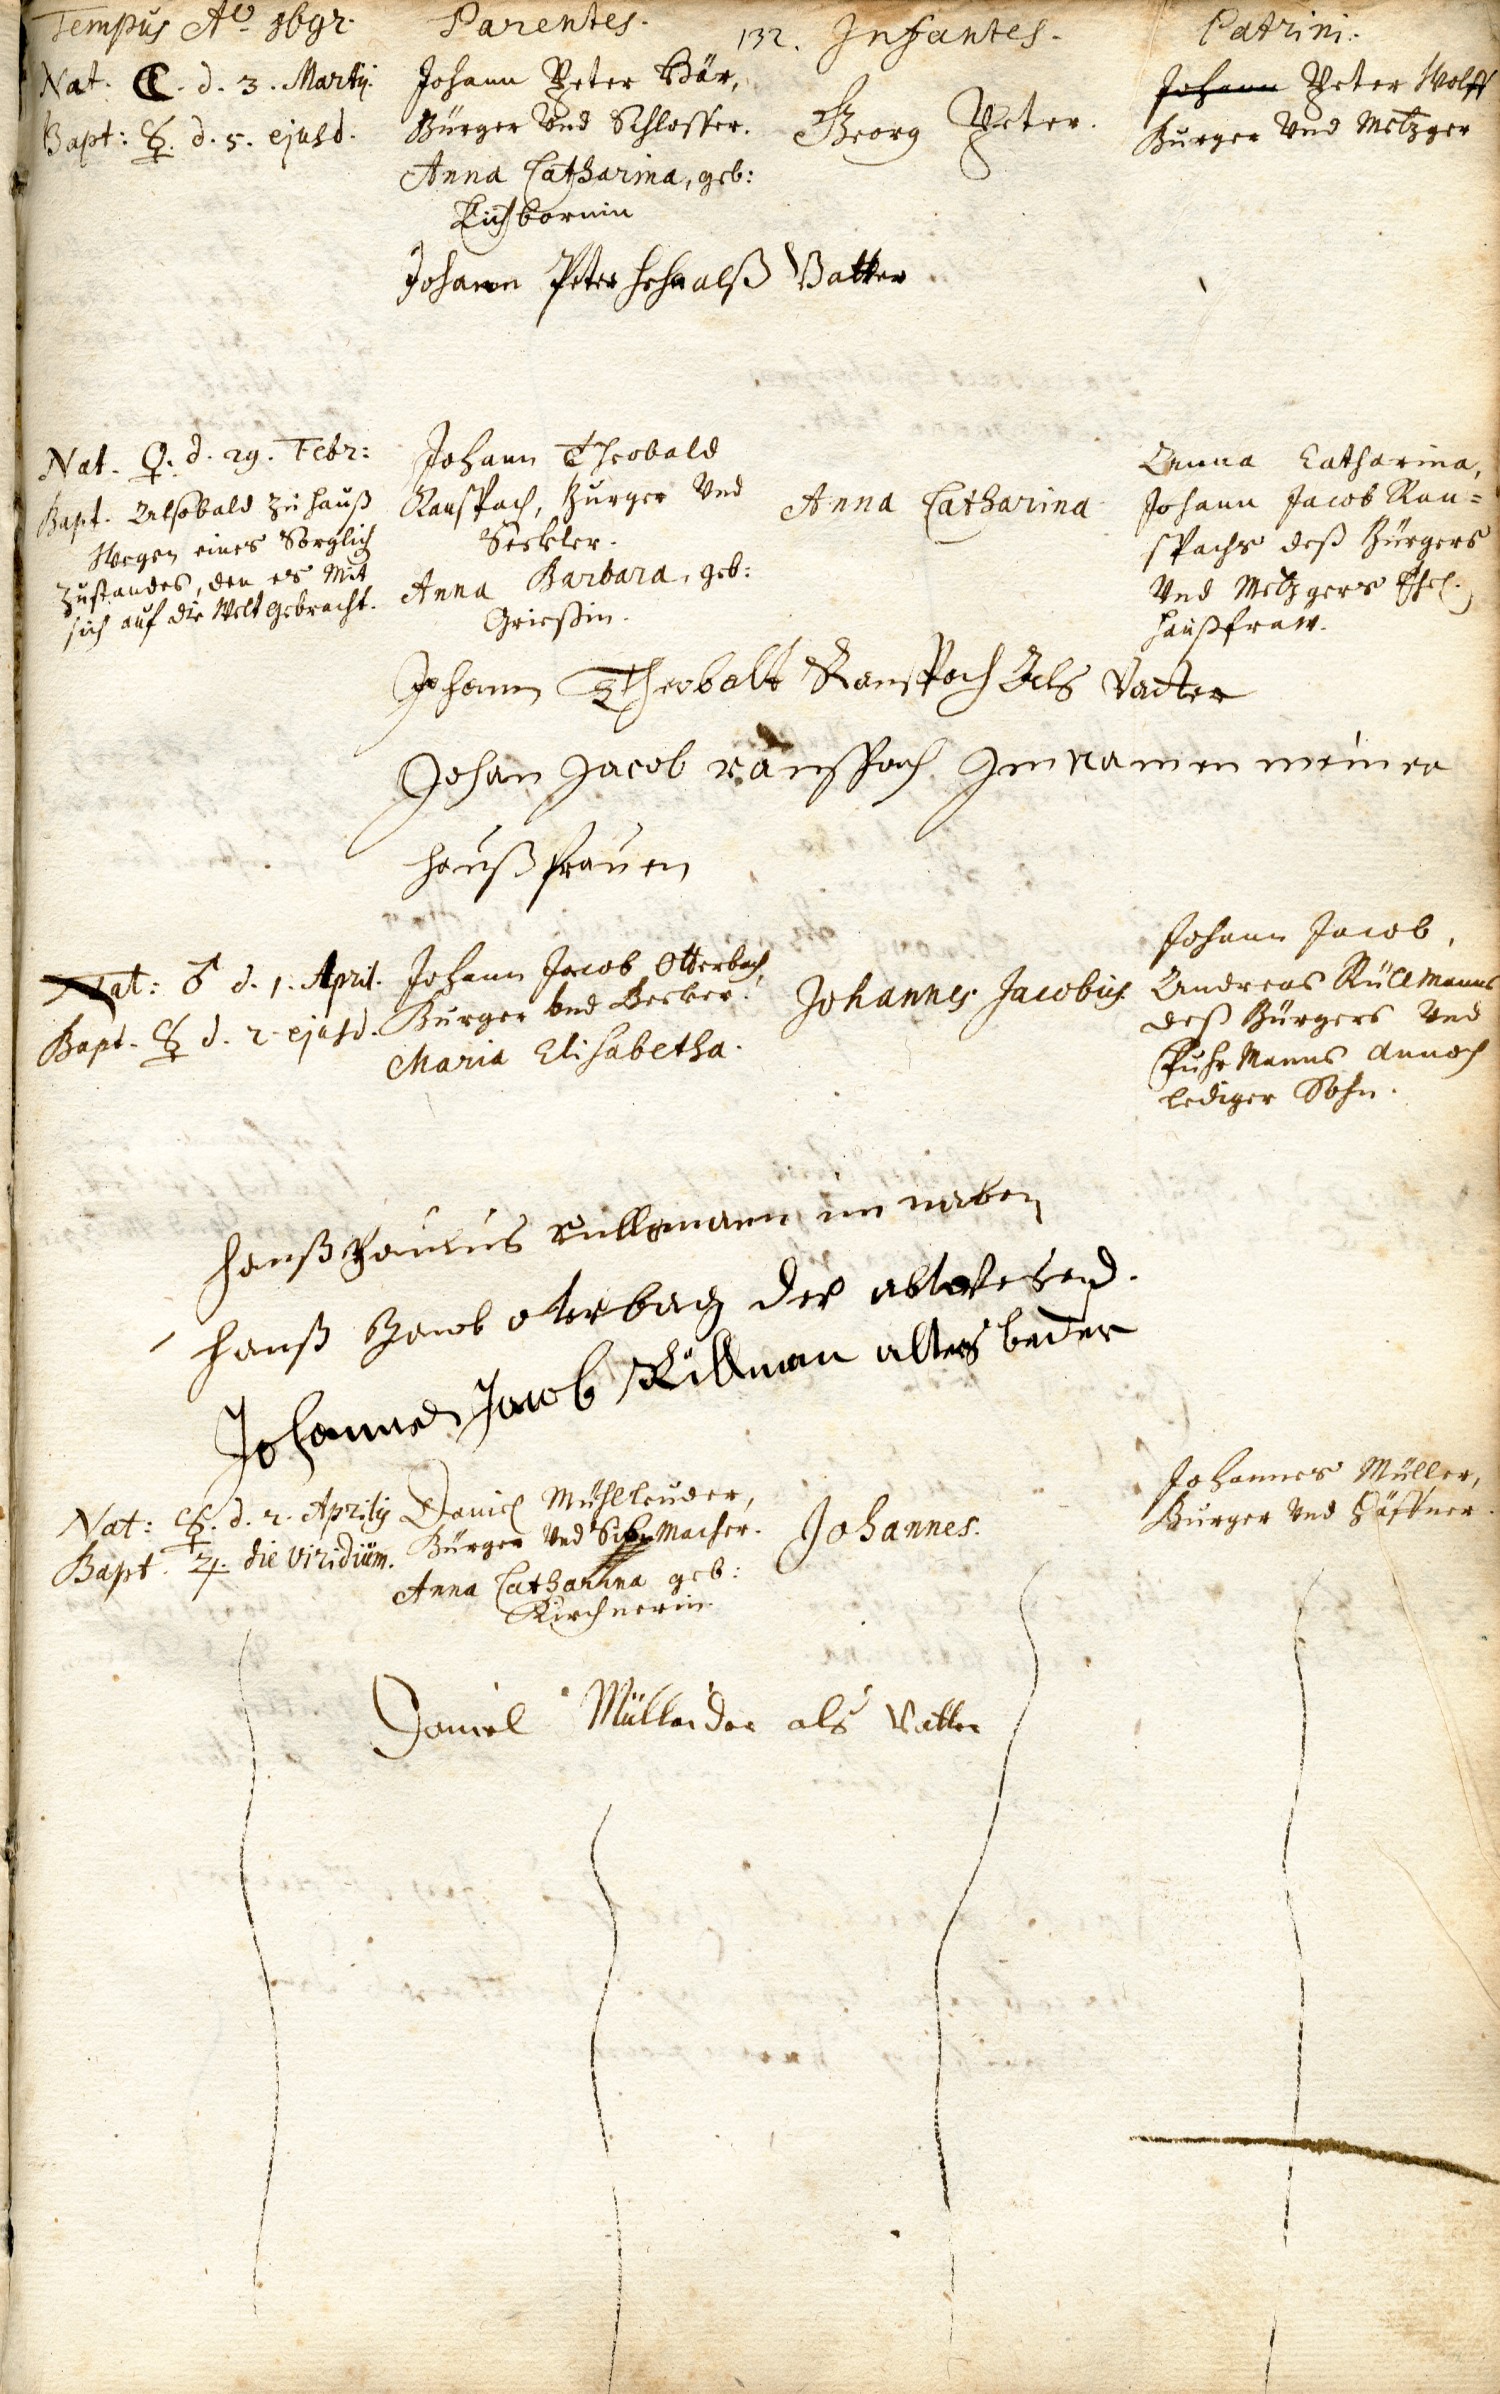 Tempus Aº 1692. Parentes. 132. Infantes. Patrini.
Nat. ☾. d. 3. Martij.
Bapt: ☿. d. 5. ejusd.
Johann Peter Bär,
Bürger Vnd Schlosser.
Anna Catharina, geb:
Eichbornin
Georg Peter.
Johann Peter Wolff
Burger Vnd Metzger
Johann Peter als Vatter
Nat. ♀. d. 29. Febr:
Bapt. Alsobald zu hauß
Wegen eines Sorglich
zustandes, den es Mit
sich auf die Welt gebracht.
Johann Theobald
Ranspach, Burger Vnd
Seckler.
Anna Barbara, geb:
Grießin.
Anna Catharina
Anna Catharina,
Johann Jacob Ran=
spachs deß Bürgers
Vnd Metzgers Ehel.
haußfraw.
Johann Theobalt Ranspach Als Vatter
Johan Jacob ranspach Im namen meiner
haußfrauen
Nat: ♂ d. 1. April.
Bapt. ☿ d. 2. ejusd.
Johann Jacob Otterbach,
Burger Vnd Becker.
Maria Elisabetha.
Johannes Jacobus
Johann Jacob,
Andreas Rüllmanns
deß Bürgers Vnd
Fuhrmanns annoch
lediger Sohn.
hanß Paulus rullmann im namen
hanß Jacob oterbach der abwesend.
Johannes Jacob Rillman alters
Nat: ☿. d. 2. Aprilis
Bapt. ♃. die viridium.
Daniel Mühlleuder,
Bürger Vnd Macher.
Anna Catharina geb:
Kirchnerin
Johannes.
Johannes Müller,
Burger Vnd Häffner.
Daniel Mülleider als Vatter